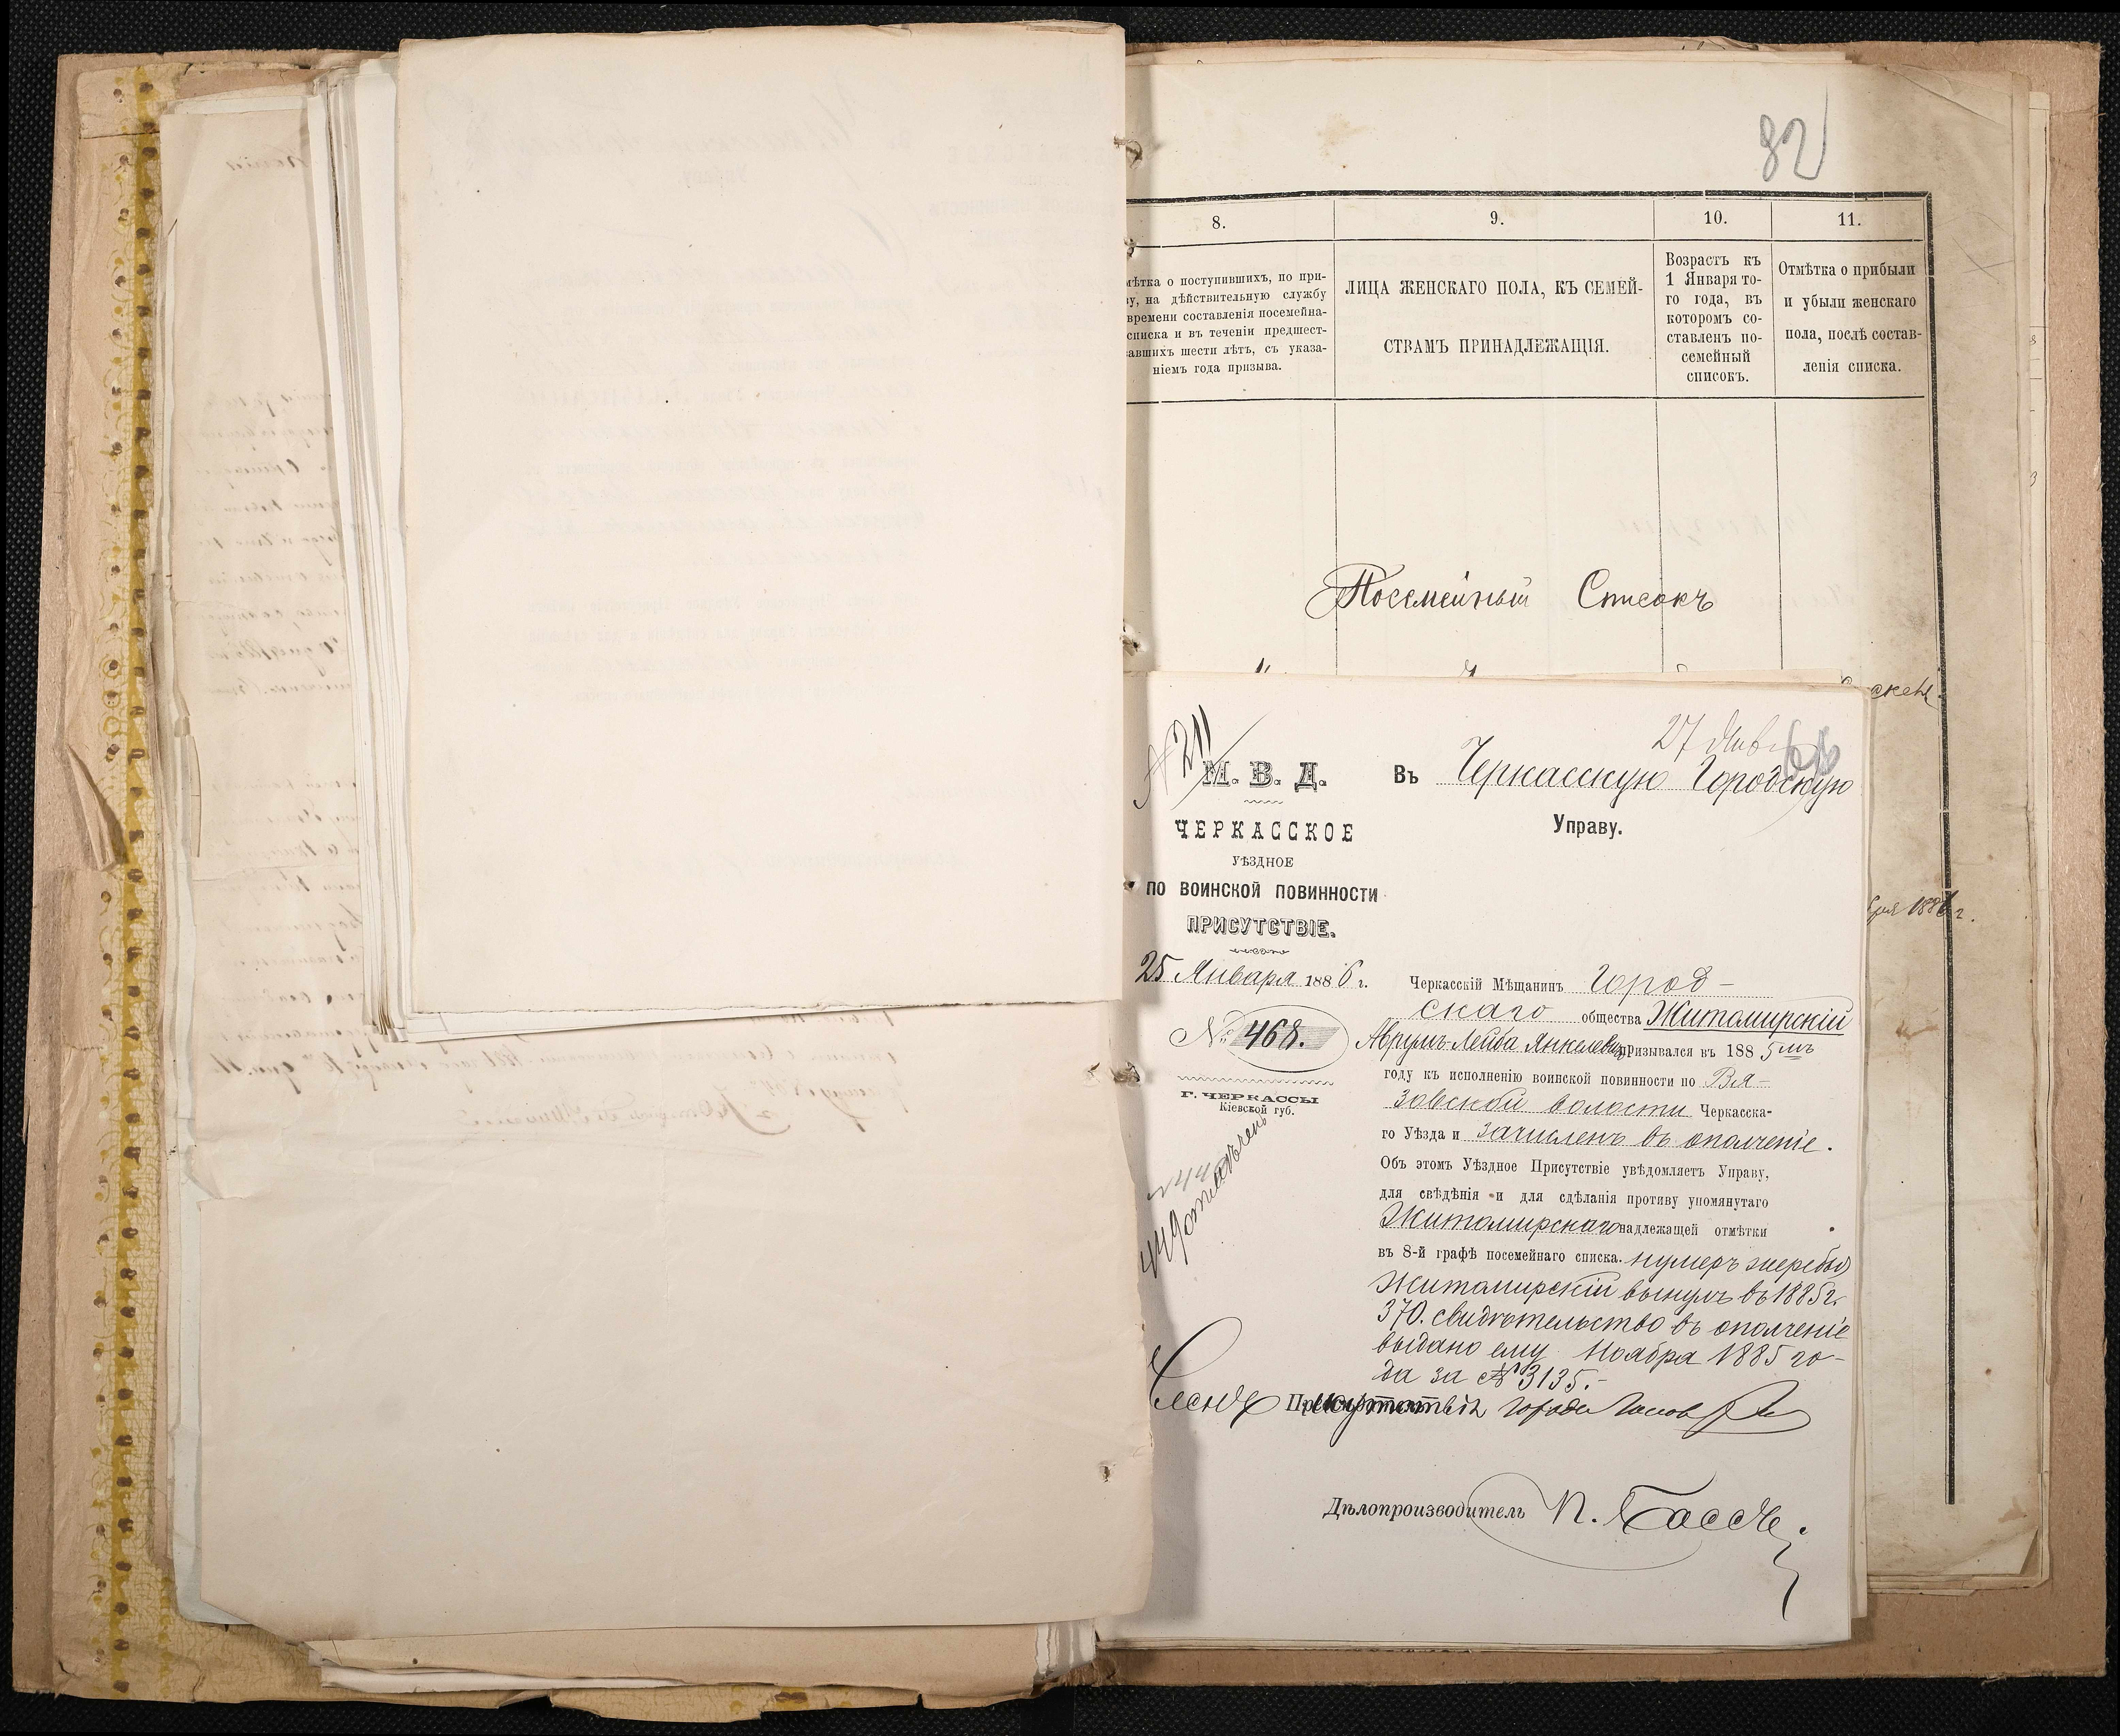 82
8.
9.
10.
11.
мѣтка о поступившихъ, по при-
ву, на дѣйствительную службу
времени составленія посемейна-
списка и въ теченіи предшест-
авшихъ шести лѣтъ, съ указа-
ніемъ года призыва.
ЛИЦА ЖЕНСКАГО ПОЛА, КЪ СЕМЕЙ-
СТВАМЪ ПРИНАДЛЕЖАЩІЯ.
Возрастъ къ
1 Января то-
го года, въ
которомъ со-
ставленъ по-
семейный
списокъ.
Отмѣтка о прибыли
и убыли женскаго
пола, послѣ состав-
ленія списка.
Посемейный Списокъ
27 Янв
№ 211
М. В. Д.
ЧЕРКАССКОЕ
УѢЗДНОЕ
ПО ВОИНСКОЙ ПОВИННОСТИ
ПРИСУТСТВІЕ.
25 Января 1886 г.
№ 468.
Г. ЧЕРКАССЫ
Кіевской губ.
Въ Черкасскую Городскую
Управу.
Черкасскій Мѣщанинъ Город-
скаго общества Житомирскій
Аврумъ-Лейба Янкелевъ призывался въ 1885мъ
году къ исполненію воинской повинности по Вя-
зовской волости Черкасска-
го Уѣзда и зачисленъ въ ополченіе.
Объ этомъ Уѣздное Присутствіе увѣдомляетъ Управу,
для свѣдѣнія и для сдѣланія противу упомянутаго
Житомирскаго надлежащей отмѣтки
въ 8-й графѣ посемейнаго списка. нумеръ жеребья
Житомирскій вынулъ въ 1885 г.
370. свидѣтельство въ ополченіе
выдано ему Ноября 1885 го-
да за № 3135.-
Членъ Присутствія Городс Голова
Дѣлопроизводитель П.